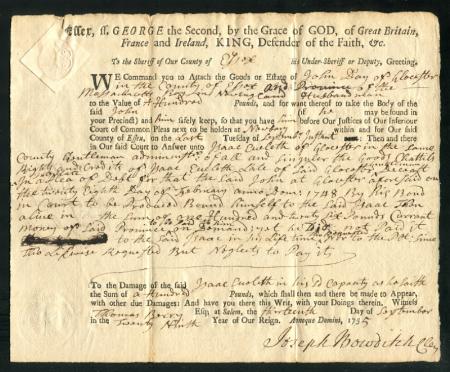 Essex, ss. GEORGE the Second, by the Grace of GOD, of Great Britain,
France and Ireland, KING, Defender of the Faith, &c.
To the Sheriff of Our County of Essex his Under-Sheriff or Deputy, Greeting,
WE Command you to Attach the Goods or Estate of John Day of Glocester
in the County of Essex and Province of the
Massachusetts Bay in New England Husbandman
to the Value of A Hundred Pounds, and for want thereof to take the Body of the
said John (if he may be found in
your Precinct) and him safely keep, so that you have him before Our Justices of Our Inferiour
Court of Common Pleas next to be holden at Newbury within and for Our said
County of Essex, on the Last Tuesday of September Instant Then and there
in Our said Court to Answer unto Isaac Eveleth of Glocester in the same
County Gentleman administrator of all and singuler the Goods Chattels
Rights & Credits of Isaac Eveleth Late of said Glocester Deceast
In a Plea of Debt for that the said John at Glocester aforesaid on
the twenty Eighth Day of February anno Dom: 1748 By His Bond
in Court to be Produced Bound himself to the said Isaac then
alive in the Sum of one Hundred and twenty six Pounds Currant
Money of said Province on Demand yet he Did not Paid it
to the said Isaac in his Life time Nor to the Plt. Since
tho Likewise Requested But Neglects to Pay it
To the Damage of the said Isaac Eveleth in his sd Capacity as he saith
the Sum of a Hundred Pounds, which shall then and there be made to Appear,
with other due Damages: And have you there this Writ, with your Doings therein. Witness
Thomas Berry Esq; at Salem, the thirteenth Day of September
in the Twenty Ninth Year of Our Reign. Annoque Domini, 1755
Joseph Bowditch Cler